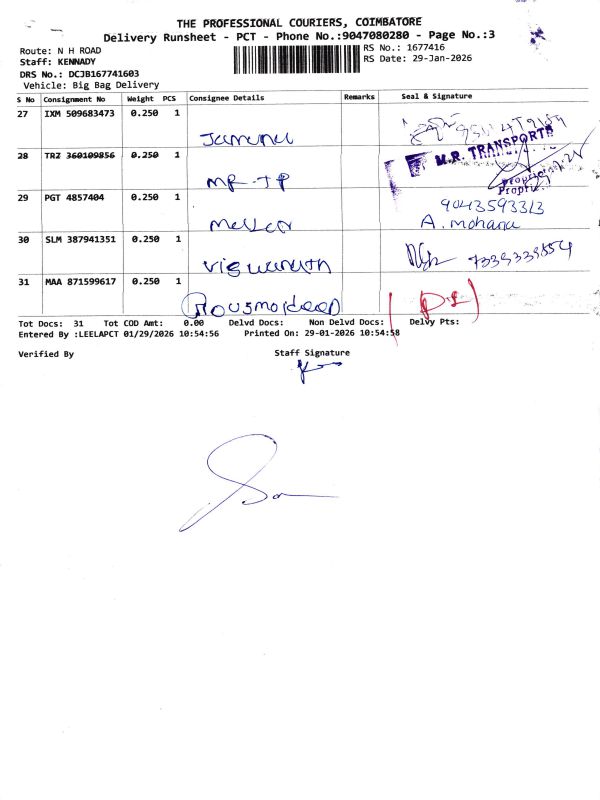 THE PROFESSIONAL COURIERS, COIMBATORE
Delivery Runsheet - PCT - Phone No.:9047080280 - Page No.:3
Route: N H ROAD
RS No.: 1677416
Staff: KENNADY
RS Date: 29-Jan-2026
DRS No.: DCJB167741603
Vehicle: Big Bag Delivery
S No Consignment No Weight PCS Consignee Details Remarks Seal & Signature
27 IXM 509683473 0.250 1
Jamuna
28 TRZ 360109856 0.250 1
M.R. TRANSPORTS
MR-JP
Proprietor
29 PGT 4857404 0.250 1
9043593313
A. mohana
30 SLM 387941351 0.250 1
Viswanath
31 MAA 871599617 0.250 1
Tot Docs: 31 Tot COD Amt: 0.00 Delvd Docs: Non Delvd Docs: Delvy Pts:
Entered By :LEELAPCT 01/29/2026 10:54:56 Printed On: 29-01-2026 10:54:58
Verified By Staff Signature